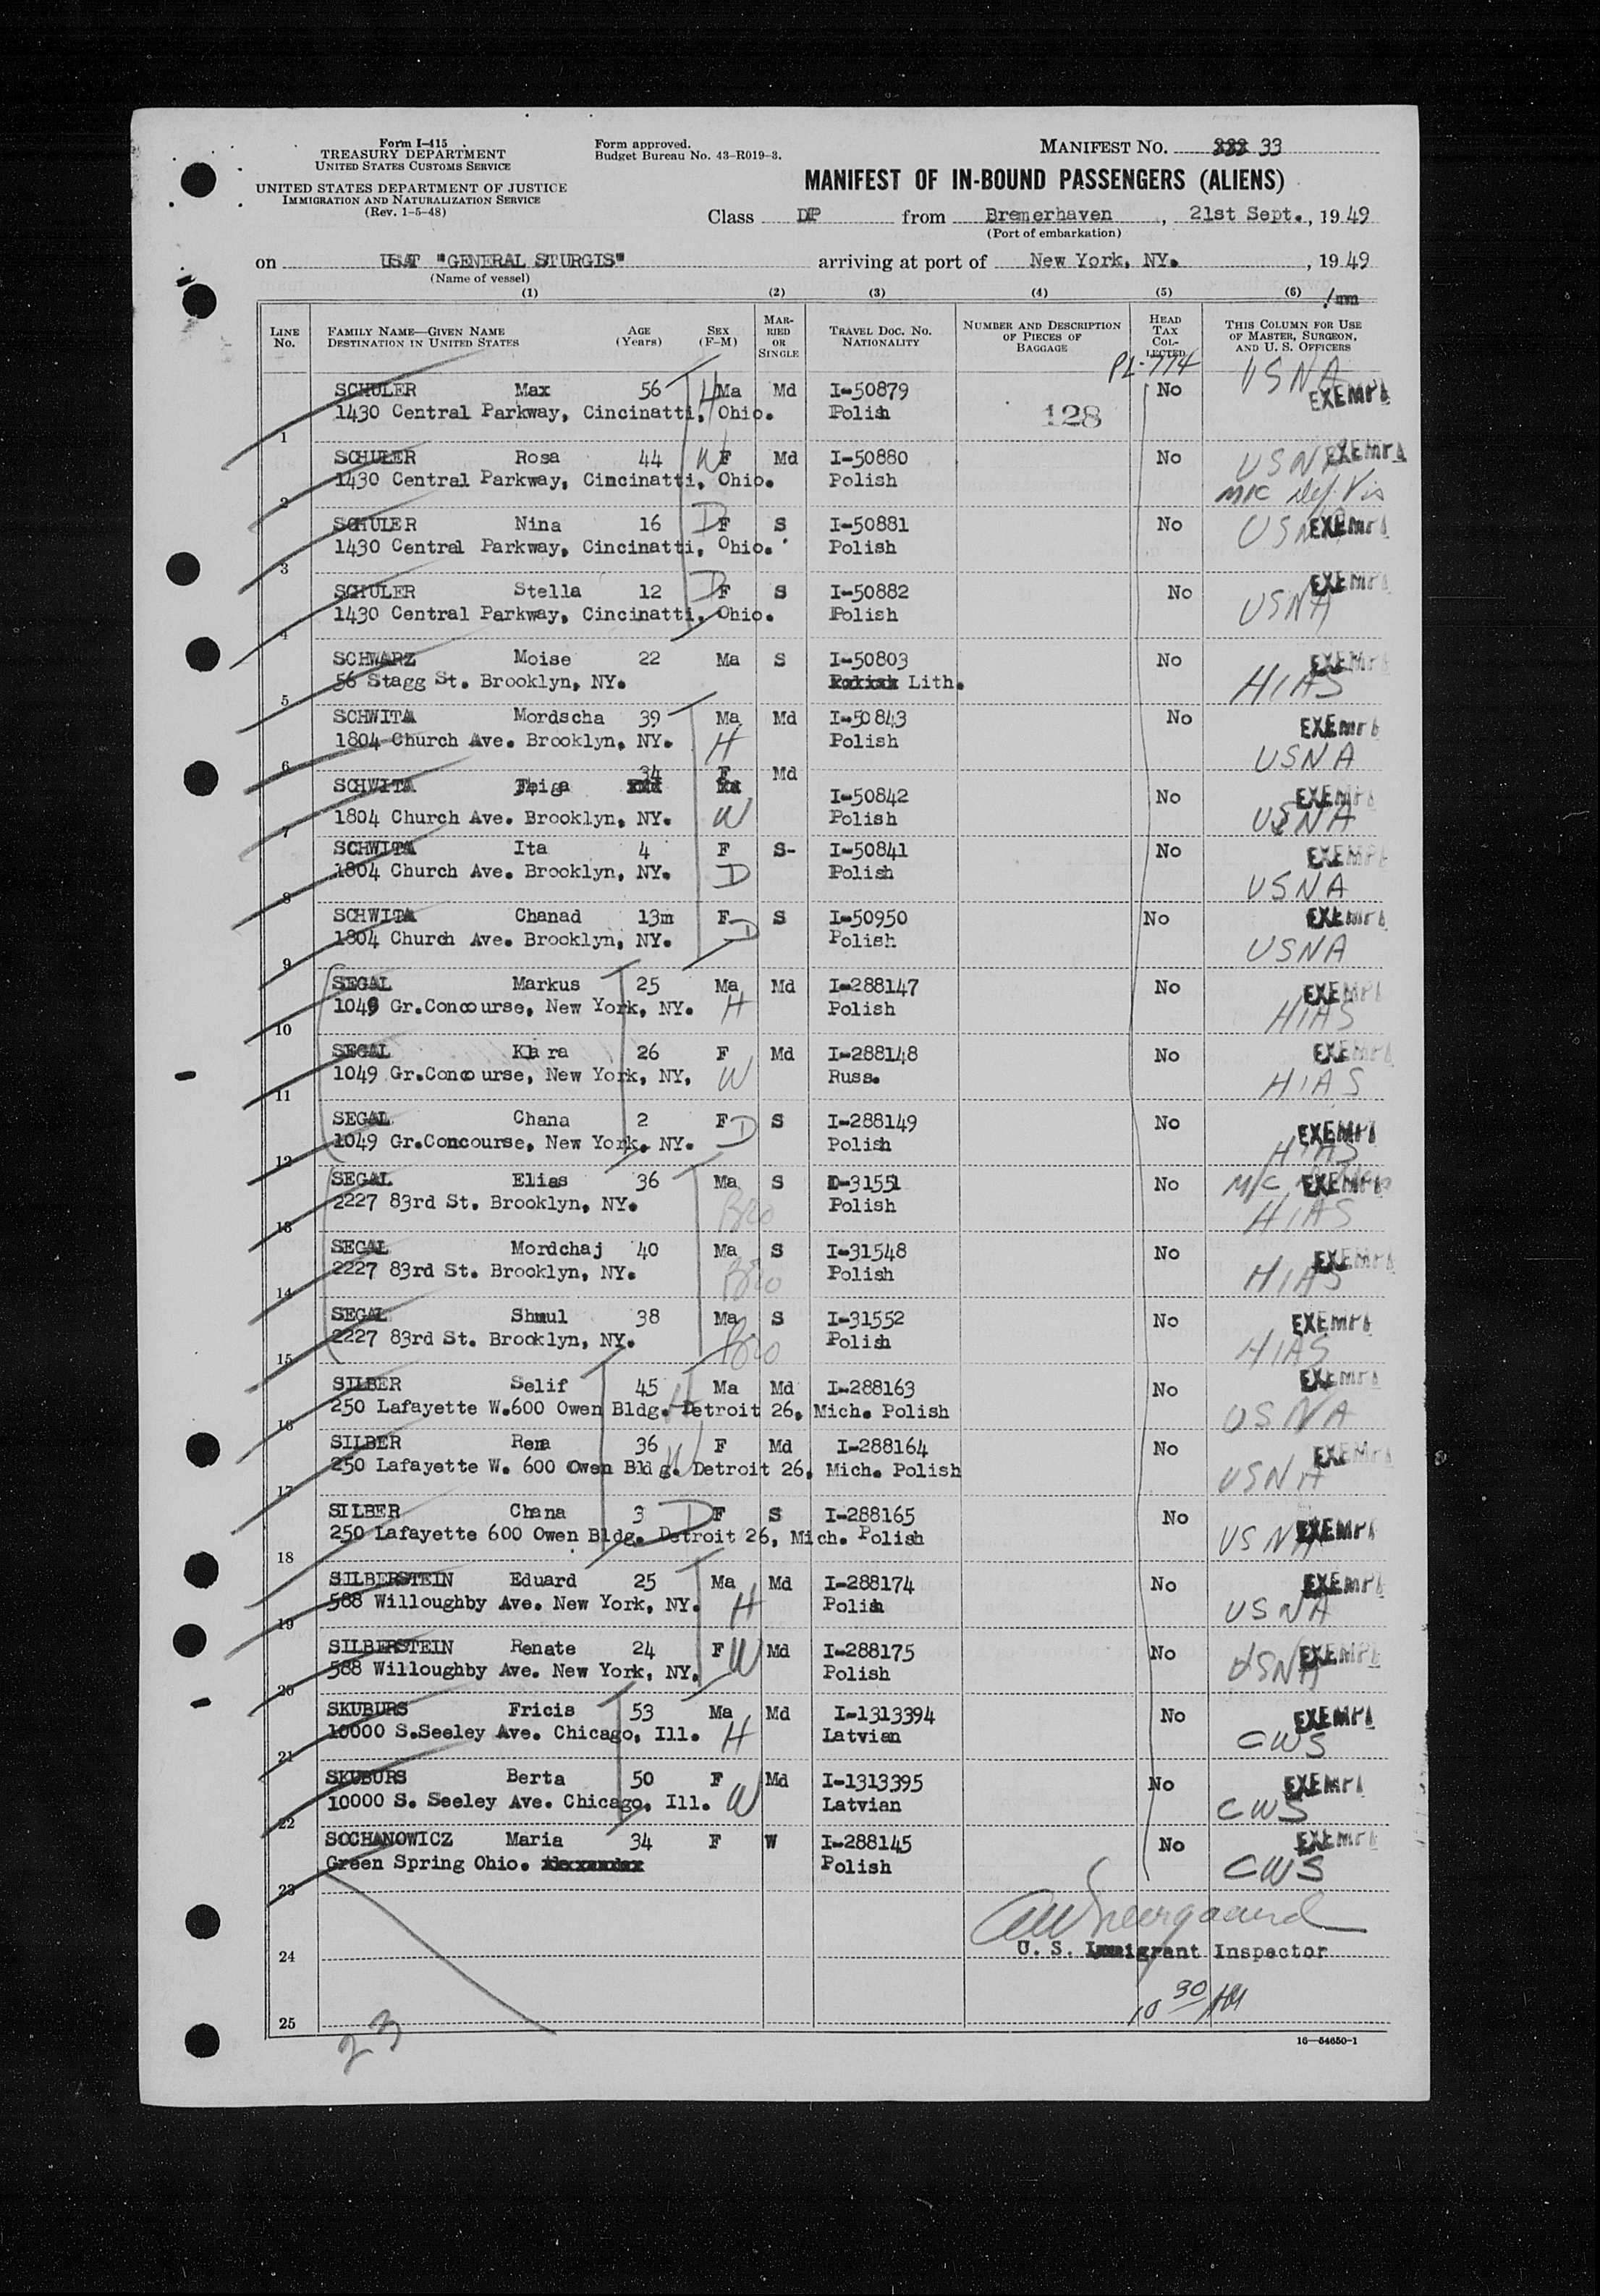 Form I-415
TREASURY DEPARTMENT
UNITED STATES CUSTOMS SERVICE
UNITED STATES DEPARTMENT OF JUSTICE
IMMIGRATION AND NATURALIZATION SERVICE
(Rev. 1-5-48)
Form approved.
Budget Bureau No. 43-R019-3.
MANIFEST NO. 33
MANIFEST OF IN-BOUND PASSENGERS (ALIENS)
Class DP from Bremerhaven, 21st Sept., 1949
(Port of embarkation)
on USAT "GENERAL STURGIS" arriving at port of New York, NY., 1949
(Name of vessel)
(1) (2) (3) (4) (5) (6)
LINE No. FAMILY NAME—GIVEN NAME DESTINATION IN UNITED STATES AGE (Years) SEX (F-M) MARRIED OR SINGLE TRAVEL DOC. NO. NATIONALITY NUMBER AND DESCRIPTION OF PIECES OF BAGGAGE HEAD TAX COLLECTED THIS COLUMN FOR USE OF MASTER, SURGEON, AND U. S. OFFICERS
PL-774
SCHULER Max 56 H Ma Md I-50879 No USNA EXEMPT
1430 Central Parkway, Cincinatti, Ohio. Polish 128
1
SCHULER Rosa 44 W F Md I-50880 No USNA EXEMPT
1430 Central Parkway, Cincinatti, Ohio. Polish M/C Def. Vis
2
SCHULER Nina 16 D F S I-50881 No USNA EXEMPT
1430 Central Parkway, Cincinatti, Ohio. Polish
3
SCHULER Stella 12 D F S I-50882 No USNA EXEMPT
1430 Central Parkway, Cincinatti, Ohio. Polish
4
SCHWARZ Moise 22 Ma S I-50803 No EXEMPT
56 Stagg St. Brooklyn, NY. Lith. HIAS
5
SCHWITA Mordscha 39 Ma Md I-50843 No EXEMPT
1804 Church Ave. Brooklyn, NY. H Polish USNA
6
SCHWITA Feiga 34 F Md I-50842 No EXEMPT
1804 Church Ave. Brooklyn, NY. W Polish USNA
7
SCHWITA Ita 4 F S- I-50841 No EXEMPT
1804 Church Ave. Brooklyn, NY. D Polish USNA
8
SCHWITA Chanad 13m F D S I-50950 No EXEMPT
1804 Church Ave. Brooklyn, NY. Polish USNA
9
SEGAL Markus 25 Ma Md I-288147 No EXEMPT
1049 Gr.Concourse, New York, NY. H Polish HIAS
10
SEGAL Klara 26 F Md I-288148 No EXEMPT
1049 Gr.Concourse, New York, NY, W Russ. HIAS
11
SEGAL Chana 2 F D S I-288149 No EXEMPT
1049 Gr.Concourse, New York, NY. Polish HIAS
12
SEGAL Elias 36 Ma S I-31551 No M/C EXEMPT
2227 83rd St. Brooklyn, NY. Bro Polish HIAS
13
SEGAL Mordchaj 40 Ma S I-31548 No EXEMPT
2227 83rd St. Brooklyn, NY. Bro Polish HIAS
14
SEGAL Shmul 38 Ma S I-31552 No EXEMPT
2227 83rd St. Brooklyn, NY. Bro Polish HIAS
15
SILBER Selif 45 H Ma Md I-288163 No EXEMPT
250 Lafayette W.600 Owen Bldg. Detroit 26, Mich. Polish USNA
16
SILBER Rena 36 W F Md I-288164 No EXEMPT
250 Lafayette W. 600 Owen Bldg. Detroit 26, Mich. Polish USNA
17
SILBER Chana 3 D F S I-288165 No
250 Lafayette 600 Owen Bldg. Detroit 26, Mich. Polish USNA EXEMPT
18
SILBERSTEIN Eduard 25 Ma Md I-288174 No EXEMPT
588 Willoughby Ave. New York, NY. H Polish USNA
19
SILBERSTEIN Renate 24 F W Md I-288175 No EXEMPT
588 Willoughby Ave. New York, NY. Polish USNA
20
SKUBURS Fricis 53 Ma Md I-1313394 No EXEMPT
10000 S.Seeley Ave. Chicago, Ill. H Latvian CWS
21
SKUBURS Berta 50 F Md I-1313395 No EXEMPT
10000 S. Seeley Ave. Chicago, Ill. W Latvian CWS
22
SOCHANOWICZ Maria 34 F W I-288145 No EXEMPT
Green Spring Ohio. Polish CWS
23
U. S. Immigrant Inspector
24
10 30 AM
25
23
16—54650-1